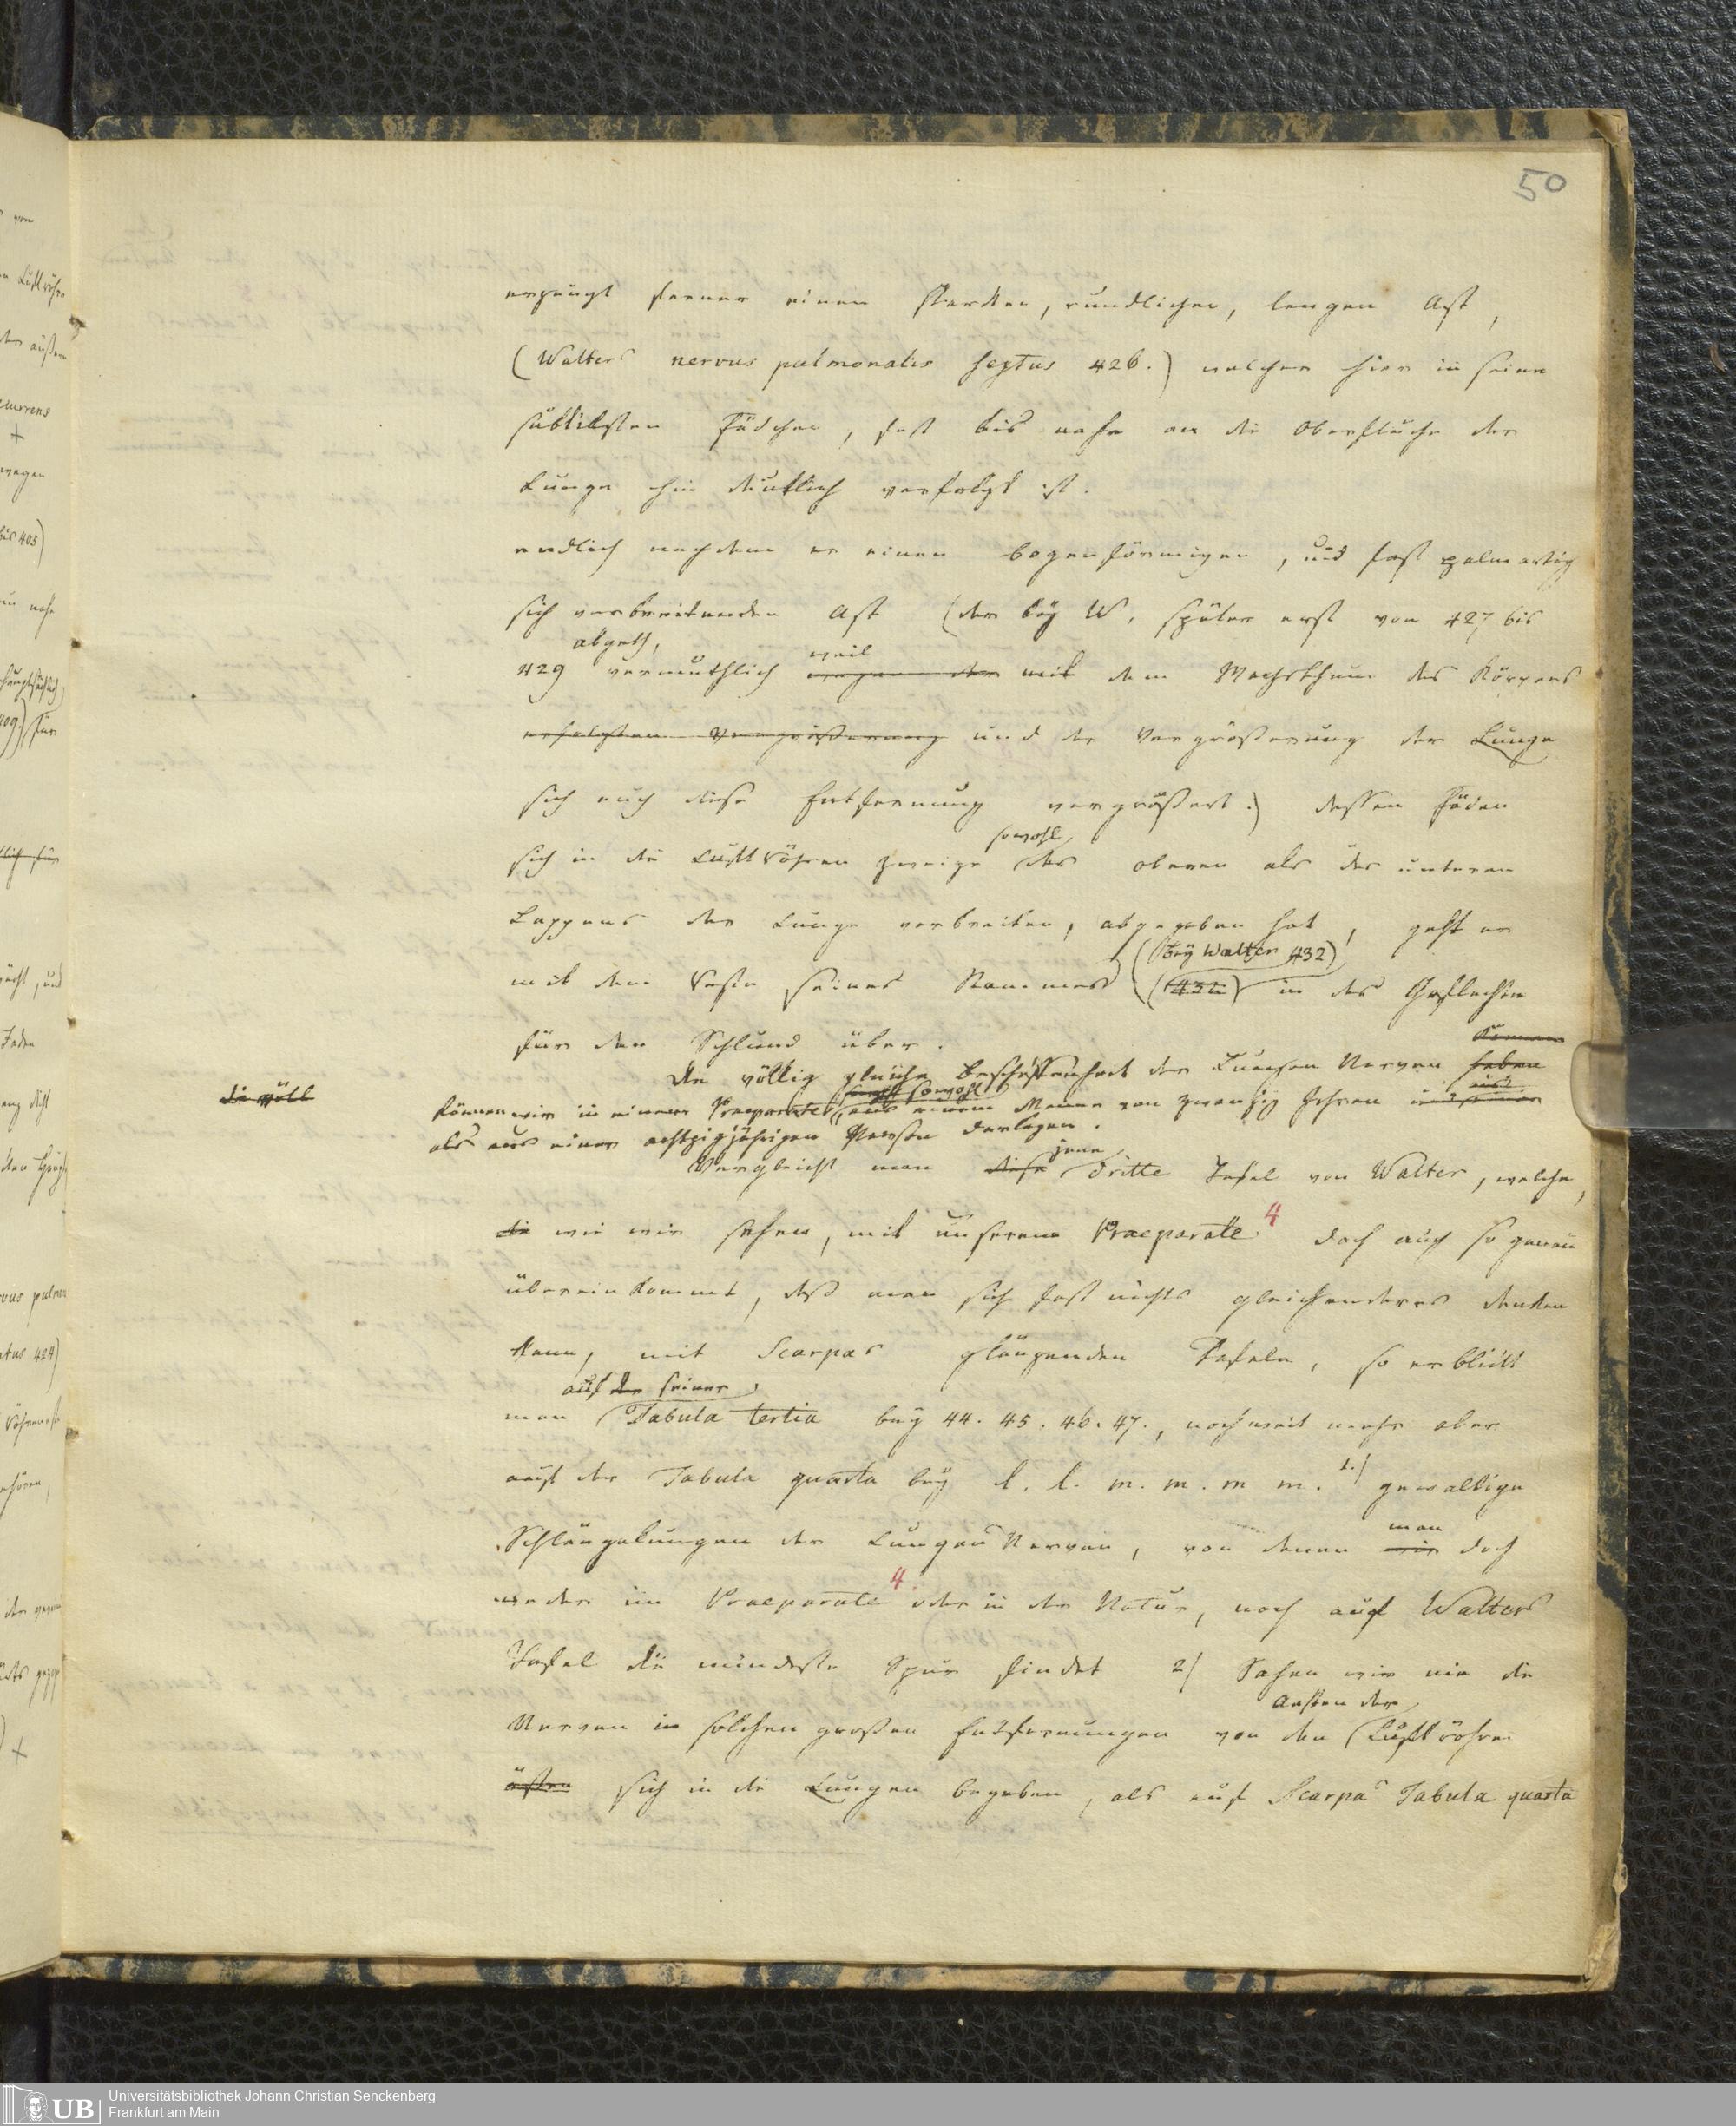 50
erzeugt ferner einen starken, rundlichen, langen Ast,
(Walters nervus pulmonalis sextus 426.) welcher hier in seinen
subtilsten Fädchen, fast bis nahe an die Oberfläche der
Lunge hin deutlich verfolgt ist.
endlich nachdem er einen bogenförmigen, und fast palmartig
sich verbreitenden Ast (der bey W. später erst von 427 bis
abgeth, weil
429 vermuthlich wegen der mit dem Wachsthum des Körpers
erfolgten Vergrößerung und der Vergrößerung der Lunge
sich auch diese Entfernung vergrößert.) dessen Fäden
sowohl
sich in die Luftröhren zweige des oberen als des unteren
Lappens der Lunge verbreiten, abgegeben hat, geht er
(bey Walter 432)
mit dem Reste seines Stammes (432) in das Geflechte
für den Schlund über.
können
Die völlig gleiche Beschaffenheit der Lungen Nerven haben
die völl
sowohl
können wir in einem Praeparate aus einem Manne von zwanzig Jahren und einer
als aus einer achtzigjährigen Person darlegen.
jene
Vergleicht man diese dritte Tafel von Walter, welche,
die wie wir sehen, mit unserem Praeparate 4 doch auch so genau
übereinkommt, daß man sich fast nichts gleichenderes denken
kann, mit Scarpas glänzenden Tafeln, so erblickt
auf der seiner
man Tabula tertia bey 44. 45. 46. 47., noch weit mehr aber
auf der Tabula quarta bey l. l. m. m. m m. 1.) gewaltige
man
Schlängelungen der Lungen Nerven, von denen wir doch
weder im Praeparate 4. oder in der Natur, noch auf Walters
Tafel die mindeste Spur findet 2) Sahen wir nie die
Aesten der
Nerven in solchen großen Entfernungen von den Luftröhren
ästen sich in die Lungen begeben, als auf Scarpas Tabula quarta
UB
Universitätsbibliothek Johann Christian Senckenberg
Frankfurt am Main